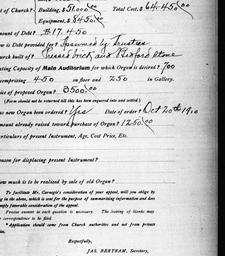 of Church? Building, $51000.00 Total Cost, $64.450.00
Equipment, $8450.00
amount of Debt? $17.450
is Debt provided for? Assumed by Trustees
Church built of? Pressed brick and Bedford stone
Seating Capacity of Main Auditorium for which Organ is desired? 700
comprising 450 on floor and 250 in Gallery.
Price of proposed Organ? $3500.00
(Form should not be returned till this has been inquired into and settled.)
new Organ been ordered? Yes Date of order? Oct 20th 1910
amount already raised toward purchase of Organ? 1250.00
Particulars of present Instrument, Age, Cost Price, Etc.
Reason for displacing present Instrument?
How much is to be realized by sale of old Organ?
To facilitate Mr. Carnegie's consideration of your appeal, will you oblige by
in the above, which is sent for the purpose of summarising information and does
imply favorable consideration of the appeal.
Precise answer to each question is necessary. The leaving of blanks may
correspondence to be filed.
Application should come from Church authorities and not from private
Respectfully,
JAS. BERTRAM, Secretary,